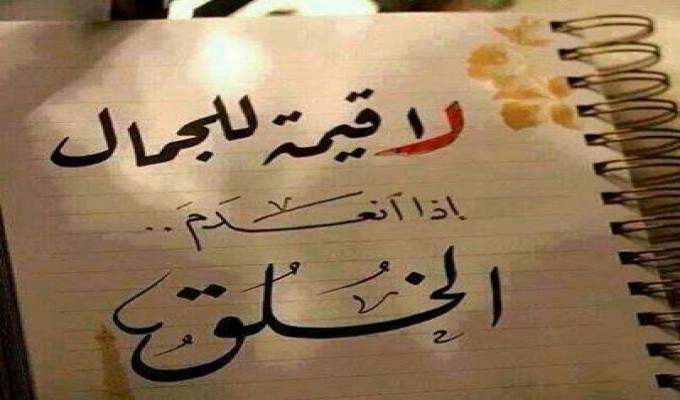 لا قيمة للجمال
إذا انعدمَ..
الخُلُقُ